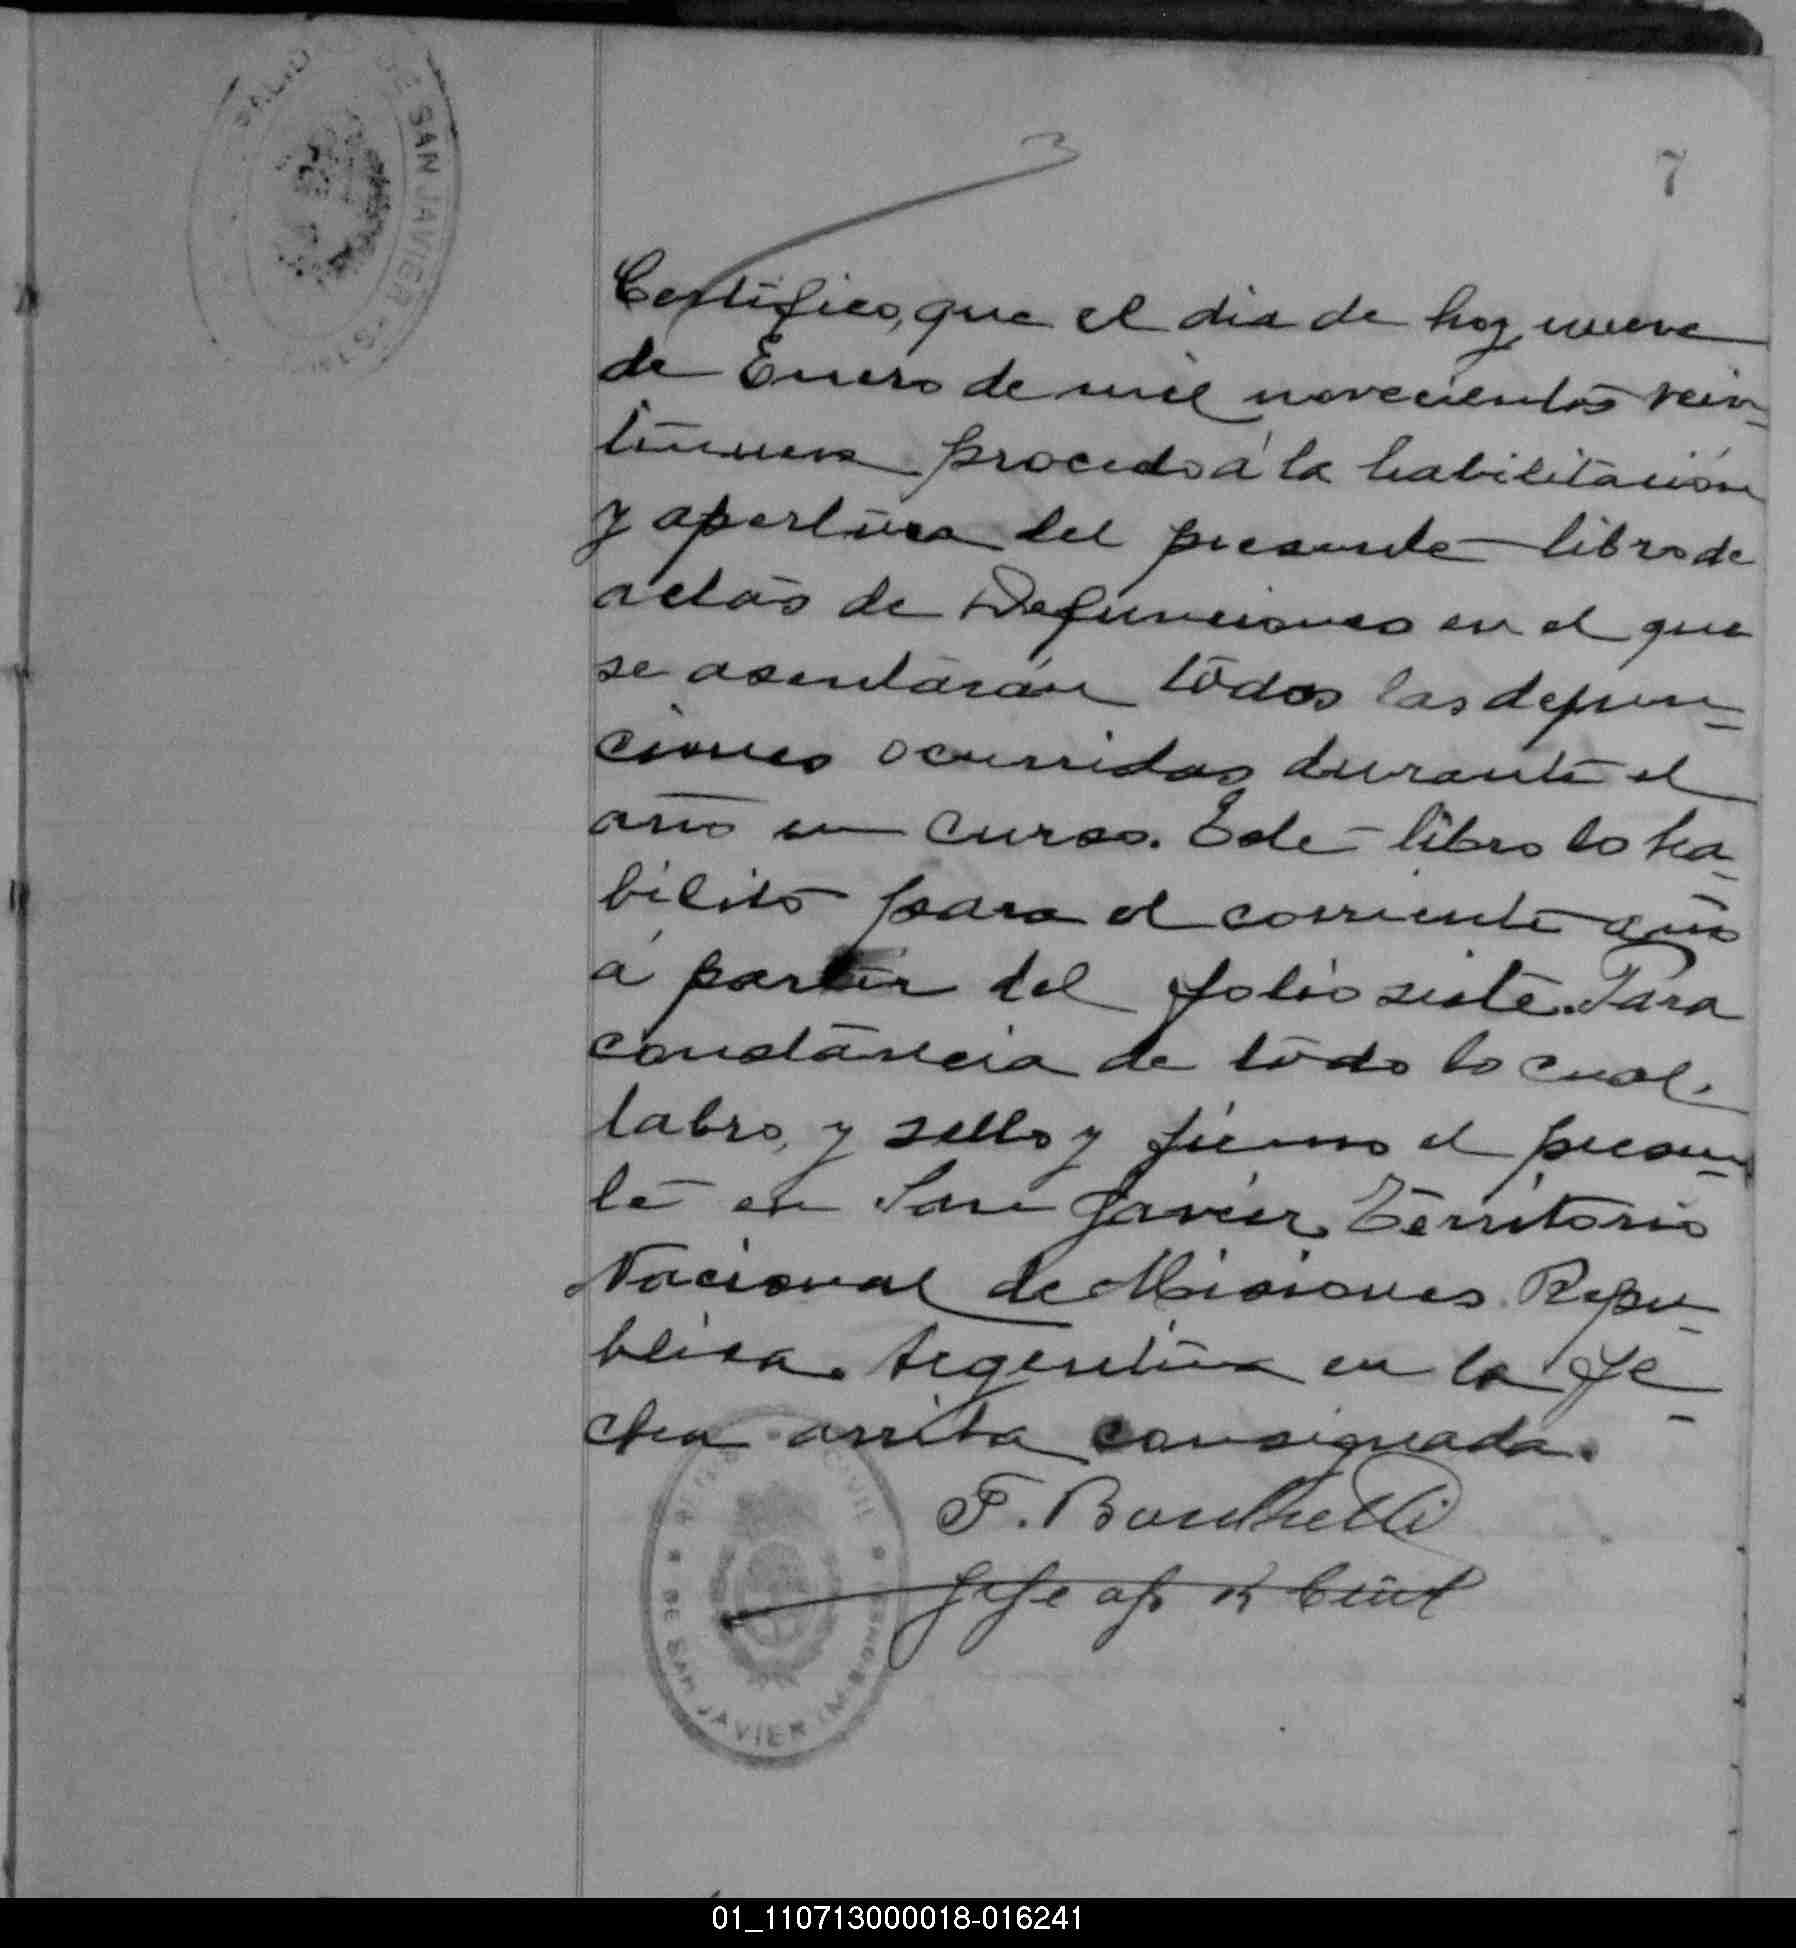 3
7
Certifico, que el dia de hoy nueve
de Enero de mil novecientos vein=
tinueve procedo á la habilitación
y apertura del presente libro de
actas de Defunciones en el que
se asentarán todas las defun=
ciones ocurridas durante el
año en curso. Este libro lo ha=
bilito para el corriente año
á partir del folio siete. Para
constancia de todo lo cual,
labro, y sello y firmo el presen=
te en San Javier, Territorio
Nacional de Misiones Repu=
blica Argentina en la fe=
cha arriba consignada.
DE SAN JAVIER
CIVIL
DE SAN JAVIER (MISIONES)
Jefe of R Civil
01_110713000018-016241